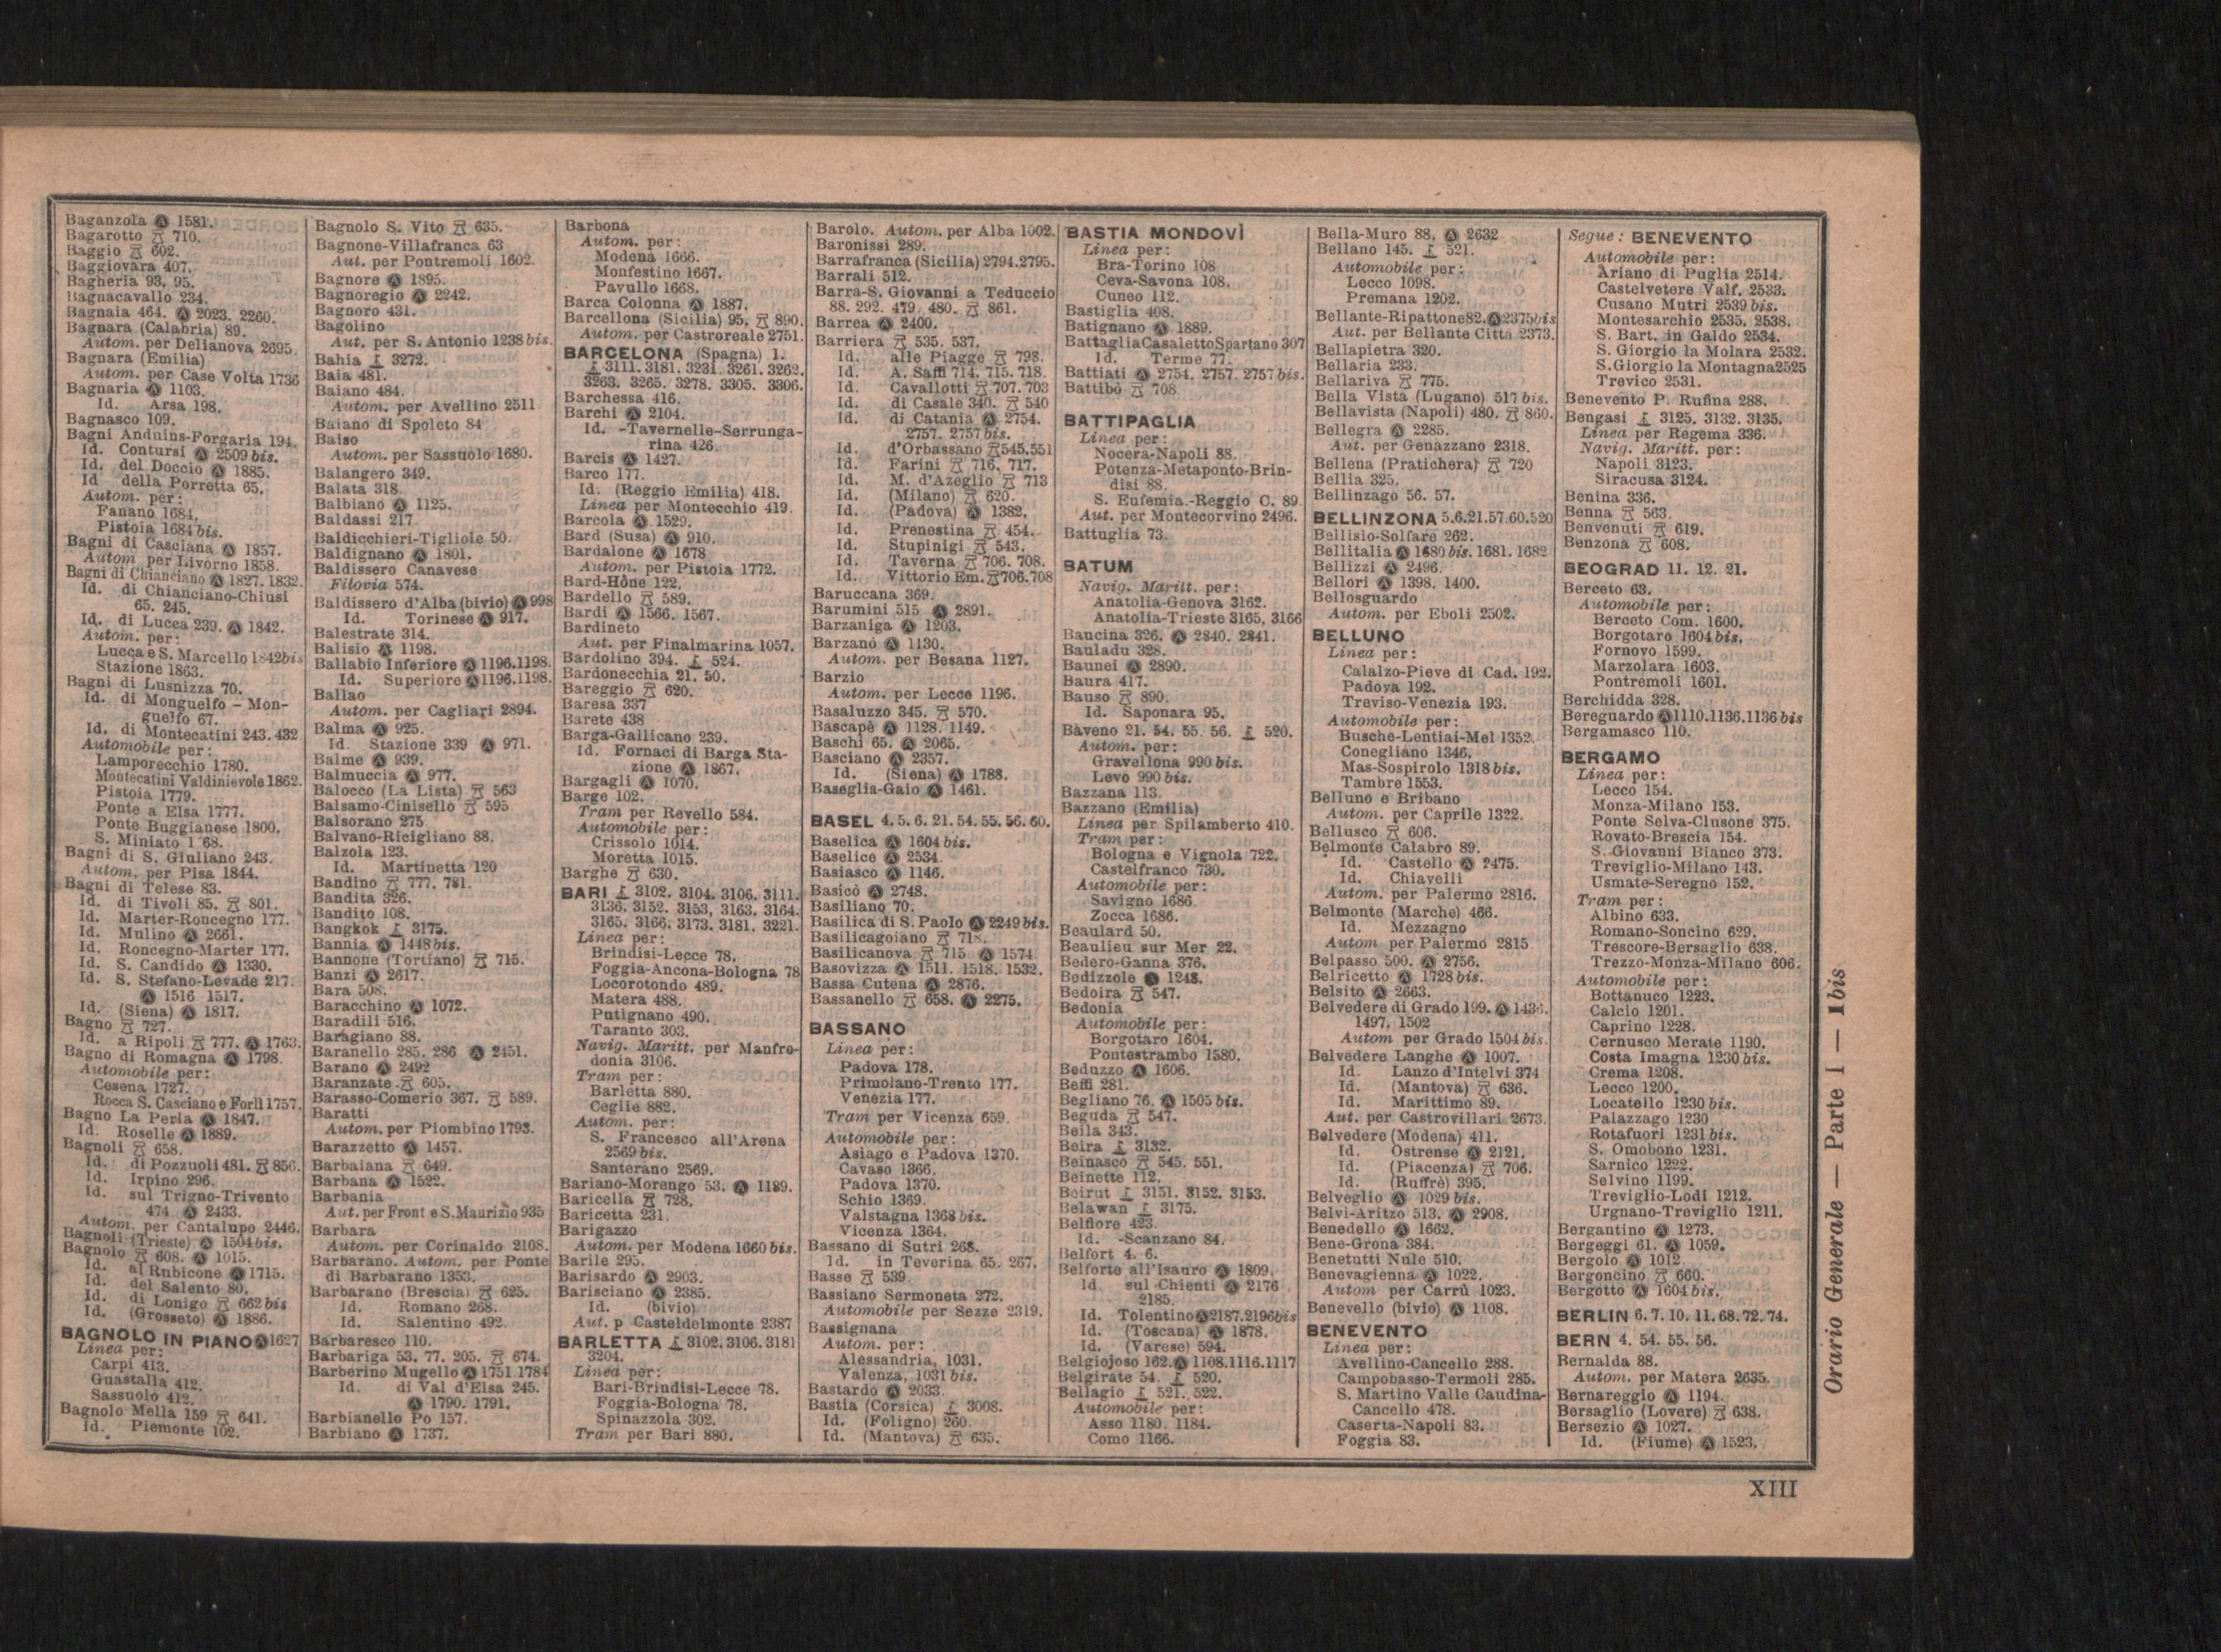 Baganzola Ⓐ 1581.
Bagarotto 710.
Baggio 602.
Baggiovara 407.
Bagheria 93. 95.
Bagnacavallo 234.
Bagnaia 464. Ⓐ 2023. 2260.
Bagnara (Calabria) 89.
Autom. per Delianova 2695.
Bagnara (Emilia)
Autom. per Case Volta 1736
Bagnaria Ⓐ 1103.
Id. Arsa 198.
Bagnasco 109.
Bagni Anduins-Forgaria 194.
Id. Contursi Ⓐ 2509 bis.
Id. del Doccio Ⓐ 1885.
Id della Porretta 65.
Autom. per:
Fanano 1684.
Pistoia 1684 bis.
Bagni di Casciana Ⓐ 1857.
Autom per Livorno 1858.
Bagni di Chianciano Ⓐ 1827. 1832.
Id. di Chianciano-Chiusi
65. 245.
Id. di Lucca 239. Ⓐ 1842.
Autom. per:
Lucca e S. Marcello 1842bis
Stazione 1863.
Bagni di Lusnizza 70.
Id. di Monguelfo - Mon-
guelfo 67.
Id. di Montecatini 243. 432
Automobile per:
Lamporecchio 1780.
Montecatini Valdinievole 1862.
Pistoia 1779.
Ponte a Elsa 1777.
Ponte Buggianese 1800.
S. Miniato 1 68.
Bagni di S. Giuliano 243.
Autom. per Pisa 1844.
Bagni di Telese 83.
Id. di Tivoli 85. 801.
Id. Marter-Roncegno 177.
Id. Mulino Ⓐ 2661.
Id. Roncegno-Marter 177.
Id. S. Candido Ⓐ 1330.
Id. S. Stefano-Levade 217.
Ⓐ 1516 1517.
Id. (Siena) Ⓐ 1817.
Bagno 727.
Id. a Ripoli 777. Ⓐ 1763.
Bagno di Romagna Ⓐ 1798.
Automobile per:
Cesena 1727.
Rocca S. Casciano e Forlì 1757.
Bagno La Perla Ⓐ 1847.
Id. Roselle Ⓐ 1889.
Bagnoli 658.
Id. di Pozzuoli 481. 856.
Id. Irpino 296.
Id. sul Trigno-Trivento
474 Ⓐ 2433.
Autom. per Cantalupo 2446.
Bagnoli (Trieste) Ⓐ 1504bis.
Bagnolo 608. Ⓐ 1015.
Id. al Rubicone Ⓐ 1715.
Id. del Salento 80.
Id. di Lonigo 662 bis
Id. (Grosseto) Ⓐ 1886.
BAGNOLO IN PIANO Ⓐ 1627
Linea per:
Carpi 413.
Guastalla 412.
Sassuolo 412.
Bagnolo Mella 159 641.
Id. Piemonte 102.
Bagnolo S. Vito 635.
Bagnone-Villafranca 63
Aut. per Pontremoli 1602.
Bagnore Ⓐ 1895.
Bagnoregio Ⓐ 2242.
Bagnoro 431.
Bagolino
Aut. per S. Antonio 1238 bis.
Bahia 3272.
Baia 481.
Baiano 484.
Autom. per Avellino 2511
Baiano di Spoleto 84
Baiso
Autom. per Sassuolo 1680.
Balangero 349.
Balata 318.
Balbiano Ⓐ 1125.
Baldassi 217.
Baldicchieri-Tigliole 50.
Baldignano Ⓐ 1801.
Baldissero Canavese
Filovia 574.
Baldissero d'Alba (bivio) Ⓐ 998
Id. Torinese Ⓐ 917.
Balestrate 314.
Balisio Ⓐ 1198.
Ballabio Inferiore Ⓐ 1196.1198.
Id. Superiore Ⓐ 1196.1198.
Ballao
Autom. per Cagliari 2894.
Balma Ⓐ 925.
Id. Stazione 339 Ⓐ 971.
Balme Ⓐ 939.
Balmuccia Ⓐ 977.
Balocco (La Lista) 563
Balsamo-Cinisello 595
Balsorano 275
Balvano-Ricigliano 88.
Balzola 123.
Id. Martinetta 120
Bandino 777. 781.
Bandita 326.
Bandito 108.
Bangkok 3175.
Bannia Ⓐ 1448bis.
Bannone (Tortiano) 715.
Banzi Ⓐ 2617.
Bara 508.
Baracchino Ⓐ 1072.
Baradili 516.
Baragiano 88.
Baranello 285. 286 Ⓐ 2451.
Barano Ⓐ 2492
Baranzate 605.
Barasso-Comerio 367. 589.
Baratti
Autom. per Piombino 1793.
Barazzetto Ⓐ 1457.
Barbaiana 649.
Barbana Ⓐ 1522.
Barbania
Aut. per Front e S. Maurizio 935
Barbara
Autom. per Corinaldo 2108.
Barbarano. Autom. per Ponte
di Barbarano 1353.
Barbarano (Brescia) 625.
Id. Romano 268.
Id. Salentino 492.
Barbaresco 110.
Barbariga 53. 77. 205. 674.
Barberino Mugello Ⓐ 1751 1784
Id. di Val d'Elsa 245.
Ⓐ 1790. 1791.
Barbianello Po 157.
Barbiano Ⓐ 1737.
Barbona
Autom. per:
Modena 1666.
Monfestino 1667.
Pavullo 1668.
Barca Colonna Ⓐ 1887.
Barcellona (Sicilia) 95. 890.
Autom. per Castroreale 2751.
BARCELONA (Spagna) 1.
3111. 3181. 3231. 3261. 3262.
3263. 3265. 3278. 3305. 3306.
Barchessa 416.
Barchi Ⓐ 2104.
Id. -Tavernelle-Serrunga-
rina 426.
Barcis Ⓐ 1427.
Barco 177.
Id. (Reggio Emilia) 418.
Linea per Montecchio 419.
Barcola Ⓐ 1529.
Bard (Susa) Ⓐ 910.
Bardalone Ⓐ 1678
Autom. per Pistoia 1772.
Bard-Hône 122.
Bardello 589.
Bardi Ⓐ 1566. 1567.
Bardineto
Aut. per Finalmarina 1057.
Bardolino 394. 524.
Bardonecchia 21. 50.
Bareggio 620.
Baresa 337
Barete 438
Barga-Gallicano 239.
Id. Fornaci di Barga Sta-
zione Ⓐ 1867.
Bargagli Ⓐ 1070.
Barge 102.
Tram per Revello 584.
Automobile per:
Crissolo 1014.
Moretta 1015.
Barghe 630.
BARI 3102. 3104. 3106. 3111.
3136. 3152. 3153, 3163. 3164.
3165. 3166. 3173. 3181. 3221.
Linea per:
Brindisi-Lecce 78.
Foggia-Ancona-Bologna 78
Locorotondo 489.
Matera 488.
Putignano 490.
Taranto 303.
Navig. Maritt. per Manfre-
donia 3106.
Tram per:
Barletta 880.
Ceglie 882.
Autom. per:
S. Francesco all'Arena
2569 bis.
Santerano 2569.
Bariano-Morengo 53. Ⓐ 1189.
Baricella 728.
Baricetta 231.
Barigazzo
Autom. per Modena 1660 bis.
Barile 295.
Barisardo Ⓐ 2903.
Barisciano Ⓐ 2385.
Id. (bivio)
Aut. p Casteldelmonte 2387
BARLETTA 3102. 3106. 3181
3204.
Linea per:
Bari-Brindisi-Lecce 78.
Foggia-Bologna 78.
Spinazzola 302.
Tram per Bari 880.
Barolo. Autom. per Alba 1002.
Baronissi 289.
Barrafranca (Sicilia) 2794.2795.
Barrali 512.
Barra-S. Giovanni a Teduccio
88. 292. 479. 480. 861.
Barrea Ⓐ 2400.
Barriera 535. 537.
Id. alle Piagge 798.
Id. A. Saffi 714. 715. 718.
Id. Cavallotti 707. 703
Id. di Casale 340. 540
Id. di Catania Ⓐ 2754.
2757. 2757 bis.
Id. d'Orbassano 545.551
Id. Farini 716. 717.
Id. M. d'Azeglio 713
Id. (Milano) 620.
Id. (Padova) Ⓐ 1382.
Id. Prenestina 454.
Id. Stupinigi 543.
Id. Taverna 706. 708.
Id. Vittorio Em. 706.708
Baruccana 369.
Barumini 515 Ⓐ 2891.
Barzaniga Ⓐ 1203.
Barzanò Ⓐ 1130.
Autom. per Besana 1127.
Barzio
Autom. per Lecco 1196.
Basaluzzo 345. 570.
Bascapè Ⓐ 1128. 1149.
Baschi 65. Ⓐ 2065.
Basciano Ⓐ 2357.
Id. (Siena) Ⓐ 1788.
Baseglia-Gaio Ⓐ 1461.
BASEL 4. 5. 6. 21. 54. 55. 56. 60.
Baselica Ⓐ 1604 bis.
Baselice Ⓐ 2534.
Basiasco Ⓐ 1146.
Basicò Ⓐ 2748.
Basiliano 70.
Basilica di S. Paolo Ⓐ 2249 bis.
Basilicagoiano 718.
Basilicanova 715 Ⓐ 1574
Basovizza Ⓐ 1511. 1518. 1532.
Bassa Cutena Ⓐ 2876.
Bassanello 658. Ⓐ 2275.
BASSANO
Linea per:
Padova 178.
Primolano-Trento 177.
Venezia 177.
Tram per Vicenza 659.
Automobile per:
Asiago e Padova 1370.
Cavaso 1366.
Padova 1370.
Schio 1369.
Valstagna 1368 bis.
Vicenza 1364.
Bassano di Sutri 268.
Id. in Teverina 65. 267.
Basse 539.
Bassiano Sermoneta 272.
Automobile per Sezze 2319.
Bassignana
Autom. per:
Alessandria, 1031.
Valenza, 1031 bis.
Bastardo Ⓐ 2033.
Bastia (Corsica) 3008.
Id. (Foligno) 260.
Id. (Mantova) 635.
BASTIA MONDOVÌ
Linea per:
Bra-Torino 108
Ceva-Savona 108.
Cuneo 112.
Bastiglia 408.
Batignano Ⓐ 1889.
Battaglia Casaletto Spartano 307
Id. Terme 77.
Battiati Ⓐ 2754. 2757. 2757 bis.
Battibò 708.
BATTIPAGLIA
Linea per:
Nocera-Napoli 88.
Potenza-Metaponto-Brin-
disi 88.
S. Eufemia.-Reggio C. 89
Aut. per Montecorvino 2496.
Battuglia 73.
BATUM
Navig. Maritt. per:
Anatolia-Genova 3162.
Anatolia-Trieste 3165, 3166
Baucina 326. Ⓐ 2840. 2841.
Bauladu 328.
Baunei Ⓐ 2890.
Baura 417.
Bauso 890.
Id. Saponara 95.
Bàveno 21. 54. 55. 56. 520.
Autom. per:
Gravellona 990 bis.
Levo 990 bis.
Bazzana 113.
Bazzano (Emilia)
Linea per Spilamberto 410.
Tram per:
Bologna e Vignola 722.
Castelfranco 730.
Automobile per:
Savigno 1686
Zocca 1686.
Beaulard 50.
Beaulieu sur Mer 22.
Bedero-Ganna 376.
Bedizzole Ⓐ 1248.
Bedoira 547.
Bedonia
Automobile per:
Borgotaro 1604.
Pontestrambo 1580.
Beduzzo Ⓐ 1606.
Beffi 281.
Begliano 76. Ⓐ 1505 bis.
Beguda 547.
Beila 343.
Beira 3132.
Beinasco 545. 551.
Beinette 112.
Beirut 3151. 3152. 3153.
Belawan 3175.
Belfiore 423.
Id. -Scanzano 84.
Belfort 4. 6.
Belforte all'Isauro Ⓐ 1809.
Id sul Chienti Ⓐ 2176
2185.
Id. Tolentino Ⓐ 2187.2196bis
Id. (Toscana) Ⓐ 1878.
Id. (Varese) 594.
Belgiojoso 162. Ⓐ 1108.1116.1117
Belgirate 54. 520.
Bellagio 521. 522.
Automobile per:
Asso 1180. 1184.
Como 1166.
Bella-Muro 88. Ⓐ 2632
Bellano 145. 521.
Automobile per:
Lecco 1098.
Premana 1202.
Bellante-Ripattone 82. Ⓐ 2375bis
Aut. per Bellante Città 2373.
Bellapietra 320.
Bellaria 233.
Bellariva 775.
Bella Vista (Lugano) 517 bis.
Bellavista (Napoli) 480. 860.
Bellegra Ⓐ 2285.
Aut. per Genazzano 2318.
Bellena (Pratichera) 720
Bellia 325.
Bellinzago 56. 57.
BELLINZONA 5.6.21.57.60.520
Bellisio-Solfare 262.
Bellitalia Ⓐ 1680 bis. 1681. 1682
Bellizzi Ⓐ 2496.
Bellori Ⓐ 1398. 1400.
Bellosguardo
Autom. per Eboli 2502.
BELLUNO
Linea per:
Calalzo-Pieve di Cad. 192.
Padova 192.
Treviso-Venezia 193.
Automobile per:
Busche-Lentiai-Mel 1352.
Conegliano 1346.
Mas-Sospirolo 1318 bis.
Tambre 1553.
Belluno e Bribano
Autom. per Caprile 1322.
Bellusco 606.
Belmonte Calabro 89.
Id. Castello Ⓐ 2475.
Id. Chiavelli
Autom. per Palermo 2816.
Belmonte (Marche) 466.
Id. Mezzagno
Autom per Palermo 2815
Belpasso 500. Ⓐ 2756.
Belricetto Ⓐ 1728 bis.
Belsito Ⓐ 2663.
Belvedere di Grado 199. Ⓐ 1436.
1497. 1502
Autom per Grado 1504 bis.
Belvedere Langhe Ⓐ 1007.
Id. Lanzo d'Intelvi 374
Id. (Mantova) 636.
Id. Marittimo 89.
Aut. per Castrovillari 2673.
Belvedere (Modena) 411.
Id. Ostrense Ⓐ 2121.
Id. (Piacenza) 706.
Id. (Ruffrè) 395.
Belveglio Ⓐ 1029 bis.
Belvi-Aritzo 513. Ⓐ 2908.
Benedello Ⓐ 1662.
Bene-Grona 384.
Benetutti Nule 510.
Benevagienna Ⓐ 1022.
Autom per Carrù 1023.
Benevello (bivio) Ⓐ 1108.
BENEVENTO
Linea per:
Avellino-Cancello 288.
Campobasso-Termoli 285.
S. Martino Valle Caudina-
Cancello 478.
Caserta-Napoli 83.
Foggia 83.
Segue: BENEVENTO
Automobile per:
Ariano di Puglia 2514.
Castelvetere Valf. 2533.
Cusano Mutri 2539 bis.
Montesarchio 2535. 2538.
S. Bart. in Galdo 2534.
S. Giorgio la Molara 2532.
S. Giorgio la Montagna 2525
Trevico 2531.
Benevento P. Rufina 288.
Bengasi 3125. 3132. 3135.
Linea per Regema 336.
Navig. Maritt. per:
Napoli 3123.
Siracusa 3124.
Benina 336.
Benna 563.
Benvenuti 619.
Benzona 608.
BEOGRAD 11. 12. 21.
Berceto 63.
Automobile per:
Berceto Com. 1600.
Borgotaro 1604 bis.
Fornovo 1599.
Marzolara 1603.
Pontremoli 1601.
Berchidda 328.
Bereguardo Ⓐ 1110.1136.1136 bis
Bergamasco 110.
BERGAMO
Linea per:
Lecco 154.
Monza-Milano 153.
Ponte Selva-Clusone 375.
Rovato-Brescia 154.
S. Giovanni Bianco 373.
Treviglio-Milano 143.
Usmate-Seregno 152.
Tram per:
Albino 633.
Romano-Soncino 629.
Trescore-Bersaglio 638.
Trezzo-Monza-Milano 606.
Automobile per:
Bottanuco 1223.
Calcio 1201.
Caprino 1228.
Cernusco Merate 1190.
Costa Imagna 1230 bis.
Crema 1208.
Lecco 1200.
Locatello 1230 bis.
Palazzago 1230
Rotafuori 1231 bis.
S. Omobono 1231.
Sarnico 1222.
Selvino 1199.
Treviglio-Lodi 1212.
Urgnano-Treviglio 1211.
Bergantino Ⓐ 1273.
Bergeggi 61. Ⓐ 1059.
Bergolo Ⓐ 1012.
Bergoncino 660.
Bergotto Ⓐ 1604 bis.
BERLIN 6. 7. 10. 11. 68. 72. 74.
BERN 4. 54. 55. 56.
Bernalda 88.
Autom. per Matera 2635.
Bernareggio Ⓐ 1194.
Bersaglio (Lovere) 638.
Bersezio Ⓐ 1027.
Id. (Fiume) Ⓐ 1523.
Orario Generale — Parte I — 1bis
XIII